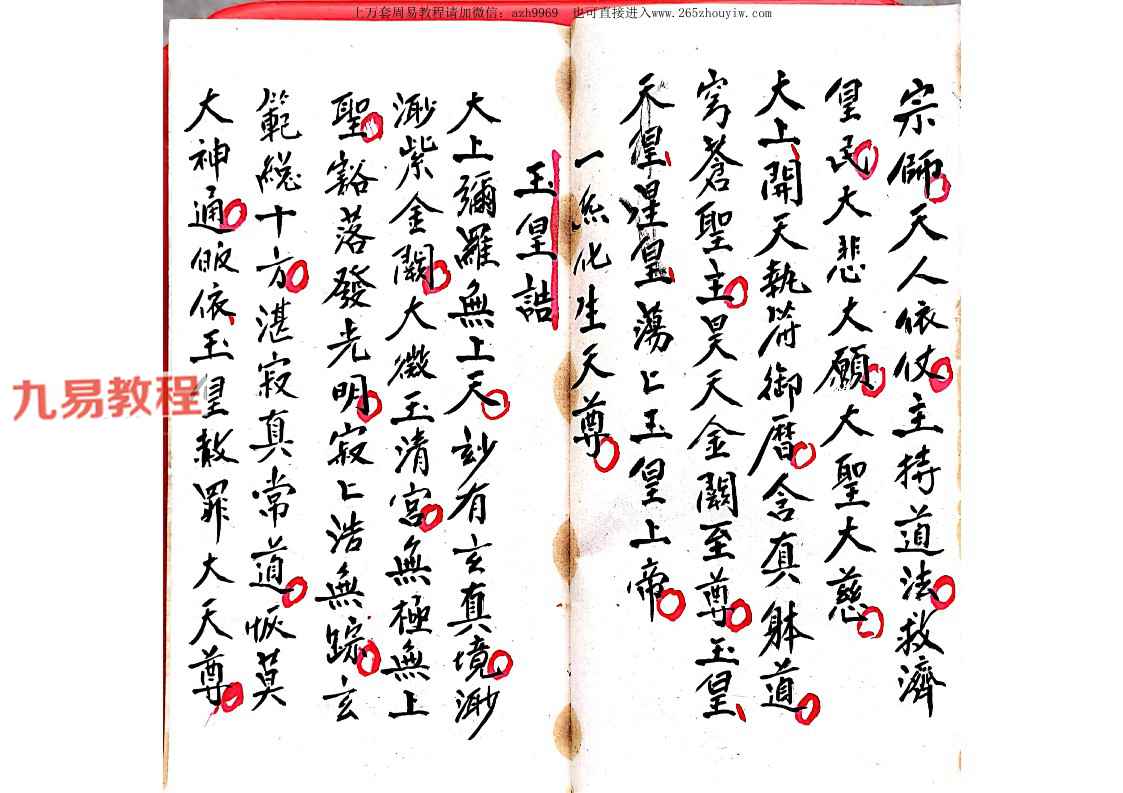 上万套周易教程请加微信：azh9969 也可直接进入www.265zhouyiw.com
宗師天人依仗主持道法救濟
皇民大悲大願大聖大慈
大上開天執符御曆含真躰道
穹蒼聖主昊天金闕至尊玉皇
天皇星皇蕩〻玉皇上帝
一炁化生天尊
玉皇誥
大上彌羅無上天玅有玄真境渺
渺紫金闕大微玉清宮無極無上
聖豁落發光明寂〻浩無踪玄
範総十方湛寂真常道恢莫
大神通皈依玉皇赦罪大天尊
九易教程